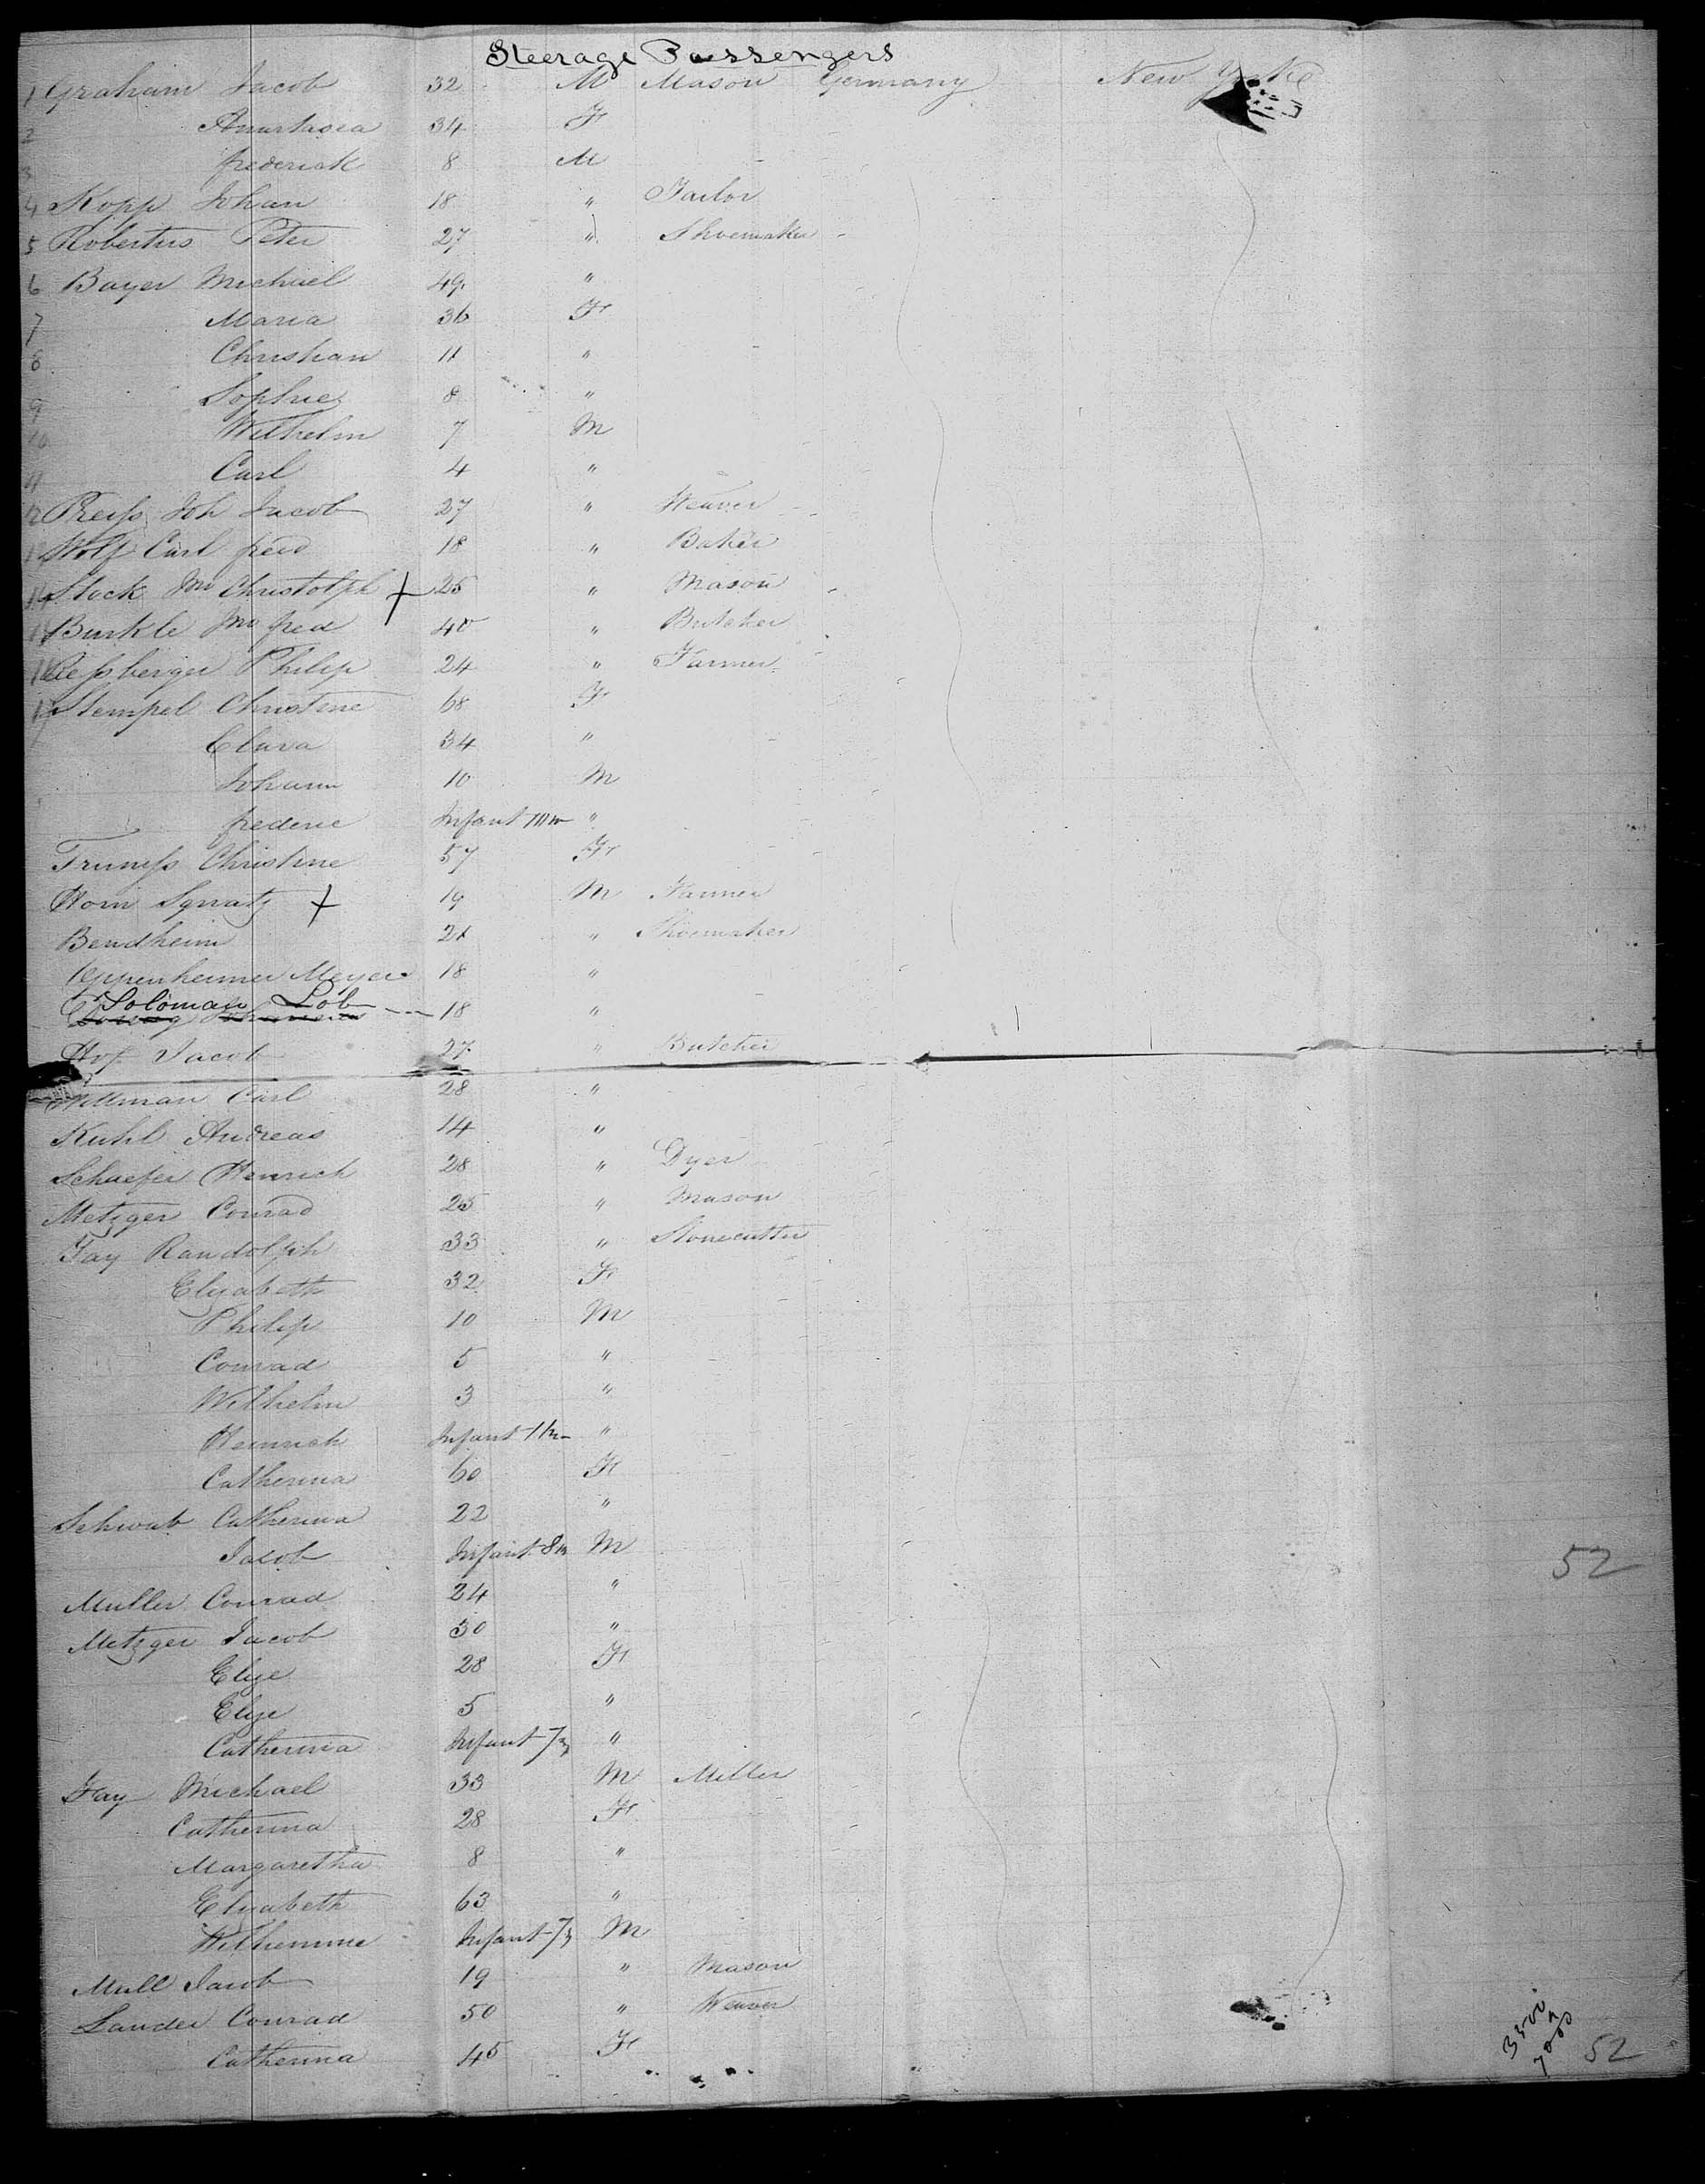 Steerage Passengers
1 Graham Jacob 32 M Mason Germany New York
2 Anastasia 34 F
3 frederick 8 M
4 Kopp Johan 18 " Tailor
5 Robertus Peter 27 " Shoemaker
6 Bayer Michael 49 "
7 Maria 36 F
8 Christian 11 "
9 Sophie 8 "
10 Wilhelm 7 M
11 Carl 4 "
12 Preiss Joh Jacob 27 " Weaver
13 Wolf Carl fred 18 " Baker
14 Stock Jno Christolph + 25 " Mason
15 Burkle Jno fred 40 " Butcher
16 Philip 24 " Farmer
17 Stempel Christine 68 F
Clara 34 "
Johann 10 M
frederic Infant 10 m "
Christine 57 F
Horn Ignatz + 19 M Farmer
Bendheim 21 " Shoemaker
Oppenheimer Meyer 18 "
Soloman Lob 18 "
Hof Jacob 27 " Butcher
Carl 28 "
Kuhl Andreas 14 "
Schaefer Henrich 28 " Dyer
Metzger Conrad 25 " Mason
Fay Randolph 33 " Stonecutter
Elisabeth 32 F
Philip 10 M
Conrad 5 "
Wilhelm 3 "
Heinrich Infant "
Catherina 60 F
Schwab Catherina 22 "
Jacob Infant 8 m M
52
Muller Conrad 24 "
Metzger Jacob 30 "
Elise 28 F
Elise 5 "
Catherina Infant 7 m "
Fay Michael 33 M Miller
Catherina 28 F
Margaretha 8 "
Elisabeth 63 "
Wilhemine Infant 7 m M
Mull Jacob 19 " Mason
Lander Conrad 50 " Weaver
Catherina 45 F
52